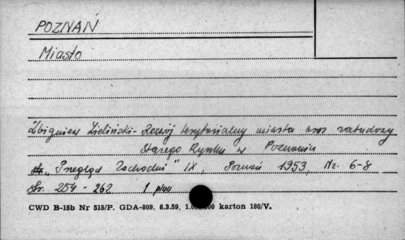 POZNAŃ
Miasto
Zbigniew Zieliński - Rozwój terytorialny miasta oraz zabudowy
Starego Rynku w Poznaniu
"Przegląd Zachodni" IX, Poznań 1953, Nr. 6-8
Str. 254 - 262 1 plan
CWD B-15b Nr 515/P. GDA-809. 6.3.59. karton 180/V.